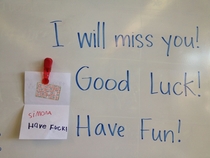 I will miss you!
Good Luck!
Simona
Have Fuck!
Have Fun!